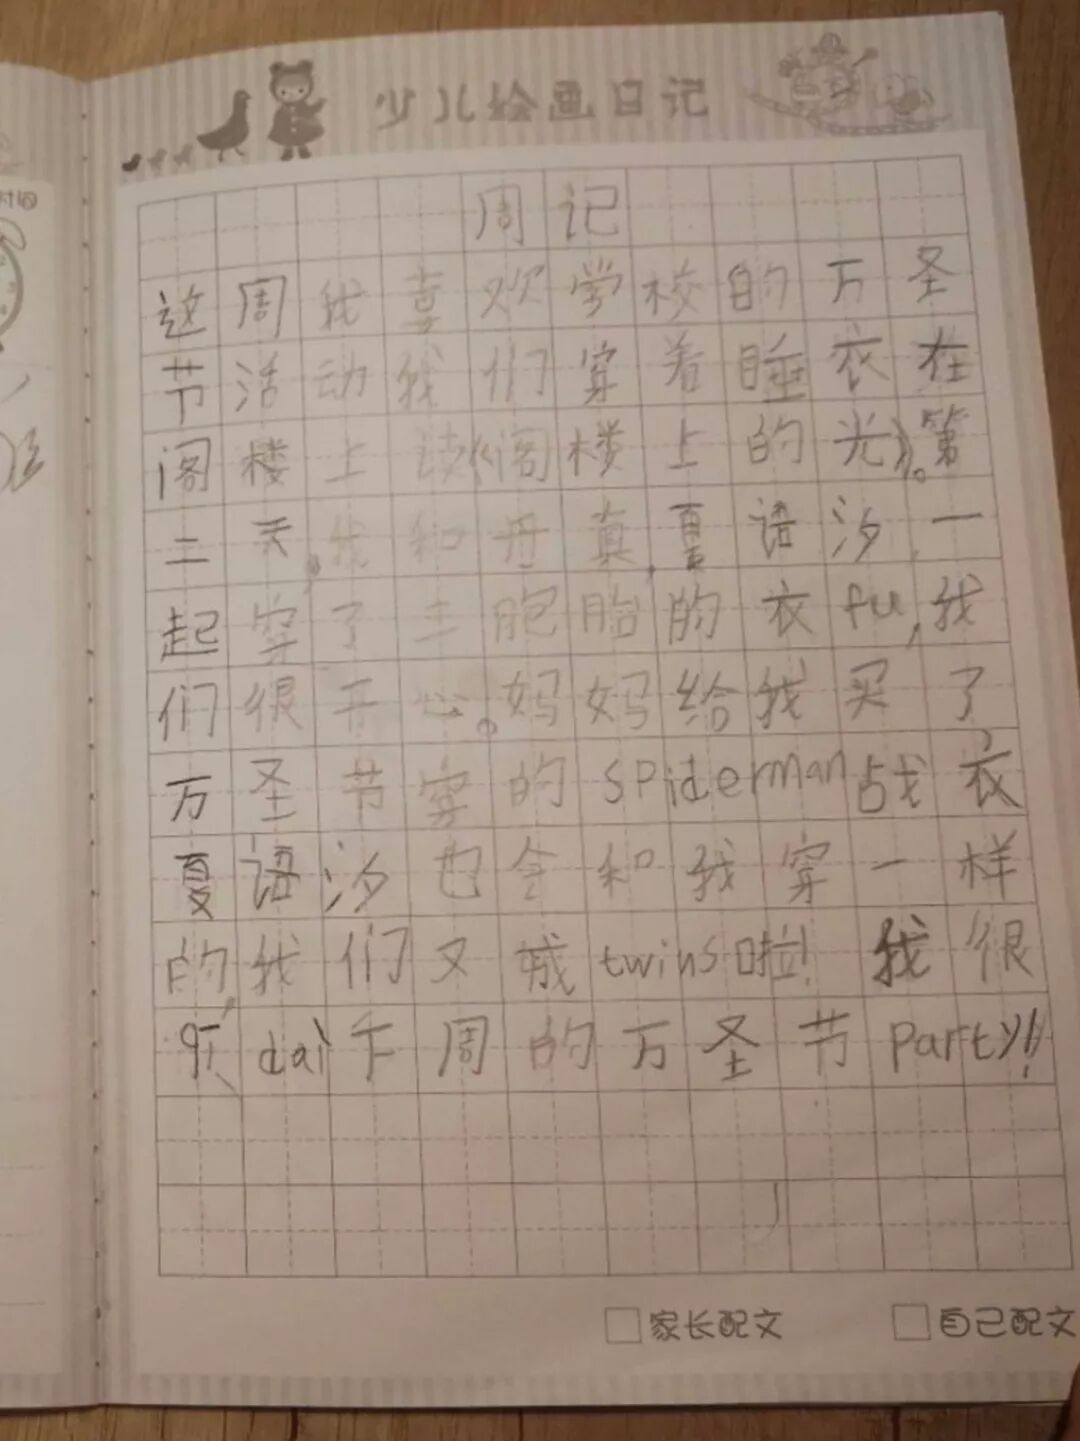 少儿绘画日记
周记
这周我喜欢学校的万圣
节活动我们穿着睡衣在
阁楼上读《阁楼上的光》。第
二天,我和丹真,夏语汐,一
起穿了三胞胎的衣fu,我
们很开心。妈妈给我买了
万圣节穿的spiderman战衣
夏语汐也会和我穿一样
的,我们又成twins啦!我很
dai下周的万圣节party!!
家长配文
自己配文